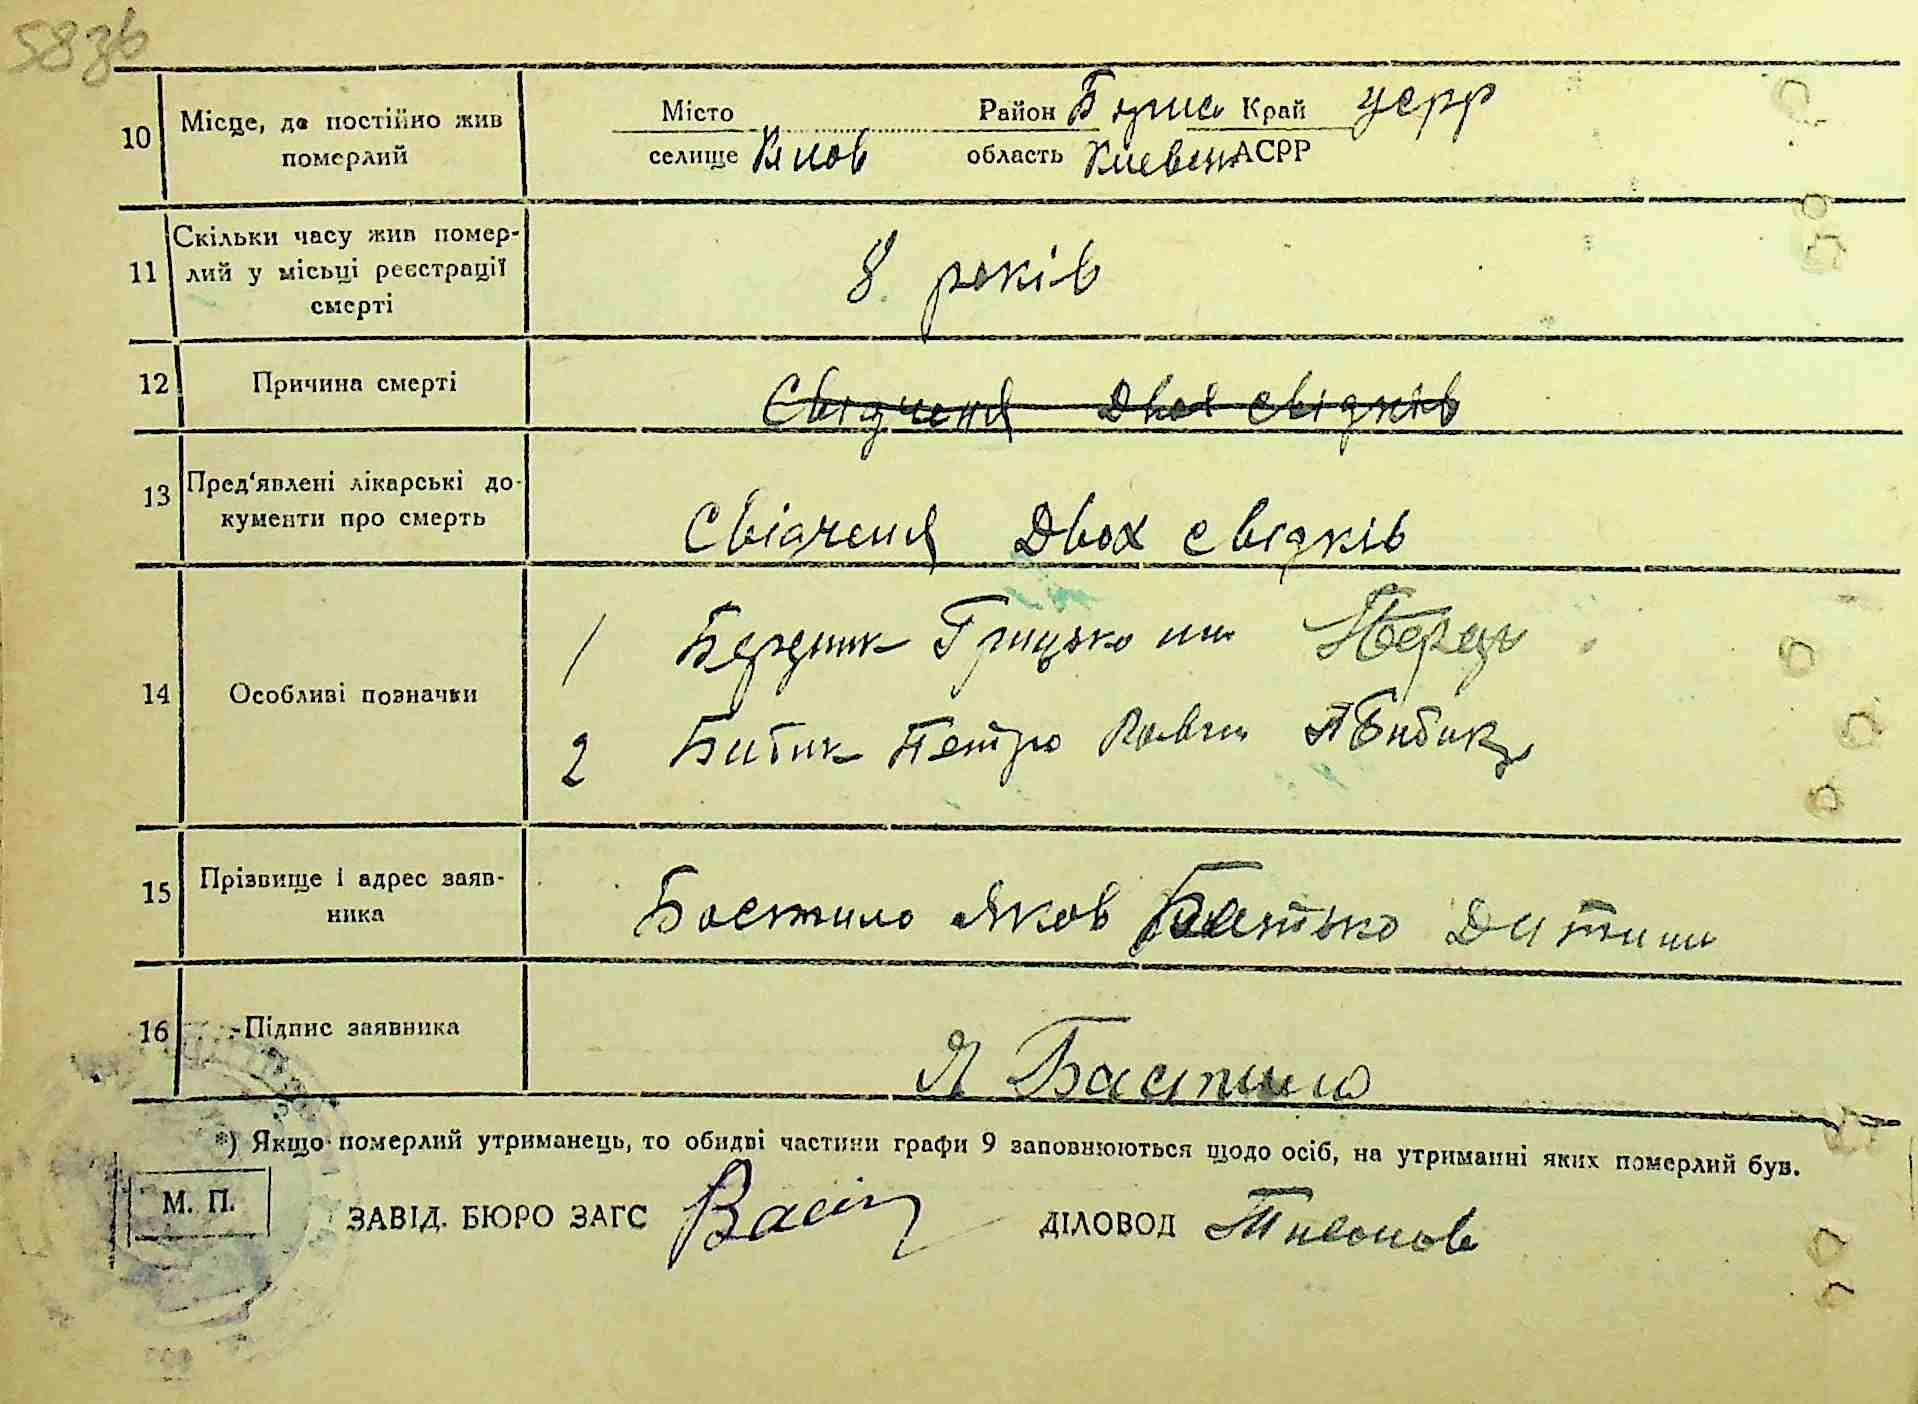 583б
10 Місце, де постійно жив померлий
Місто Район Борис Край УСРР
селище область Киевськ АСРР
11 Скільки часу жив померлий у місьці реєстрації смерті
8 років
12 Причина смерті
Свідченя Двох свідків
13 Пред'явлені лікарські документи про смерть
Свідченя Двох свідків
14 Особливі позначки
1 Бердник Грицько
2 Битик Петро
15 Прізвище і адрес заявника
Бостило Яков Батько Дитини
16 Підпис заявника
Я Бастило
*) Якщо померлий утриманець, то обидві частини графи 9 заповнюються щодо осіб, на утриманні яких померлий був.
М. П. ЗАВІД. БЮРО ЗАГС ДІЛОВОД